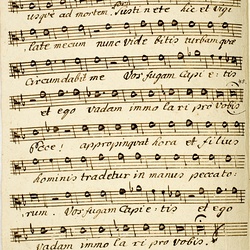 usque ad mortem. Sustinete hic et vigi
late mecum nunc vide bitis turbam quæ
Circumdabit me Vos fugam Capi e: tis
et ego vadam immo la ri pro vobis
Ecce! appropinquat hora et filius
hominis tradetur in manus peccato:
rum. Vos fugam Capi e: tis et ego
Vadam immo la ri pro vobis.